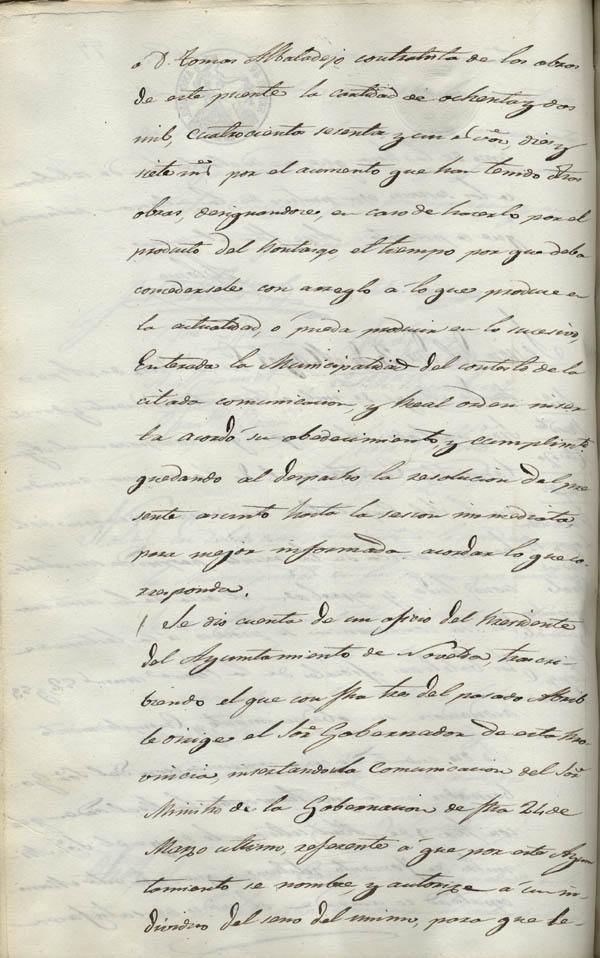 a D. Tomas Albaladejo contratista de las obras
de este puente la cantidad de ochenta y dos
mil, cuatrocientos sesenta y un rs. von, diez y
siete ms. por el aumento que han tenido dhas
obras, designandose, en caso de hacerlo por el
producto del Pontazgo el tiempo por que deba
concedersele con arreglo á lo que produce en
la actualidad, ó pueda producir en lo sucesivo,
Enterada la Municipalidad del contesto de la
citada comunicacion, y Real orden inser
ta acordó su obedecimiento, y cumplimto.
quedando al despacho la resolucion del pre
sente asunto hasta la sesion inmediata
para mejor informada acordar lo que co-
rresponda.
/ Se dio cuenta de un oficio del Presidente
del Ayuntamiento de Novelda trascri-
biendo el que con fha tres del pasado Abril
le dirige el Sor. Gobernador de esta Pro
vincia insertandola comunicacion del Sor.
Ministro de la Gobernacion de fha 24 de
Marzo ultimo, referente á que por este Ayun
tamiento se nombre, y autorize á un in-
dividuo del seno del mismo, para que le-